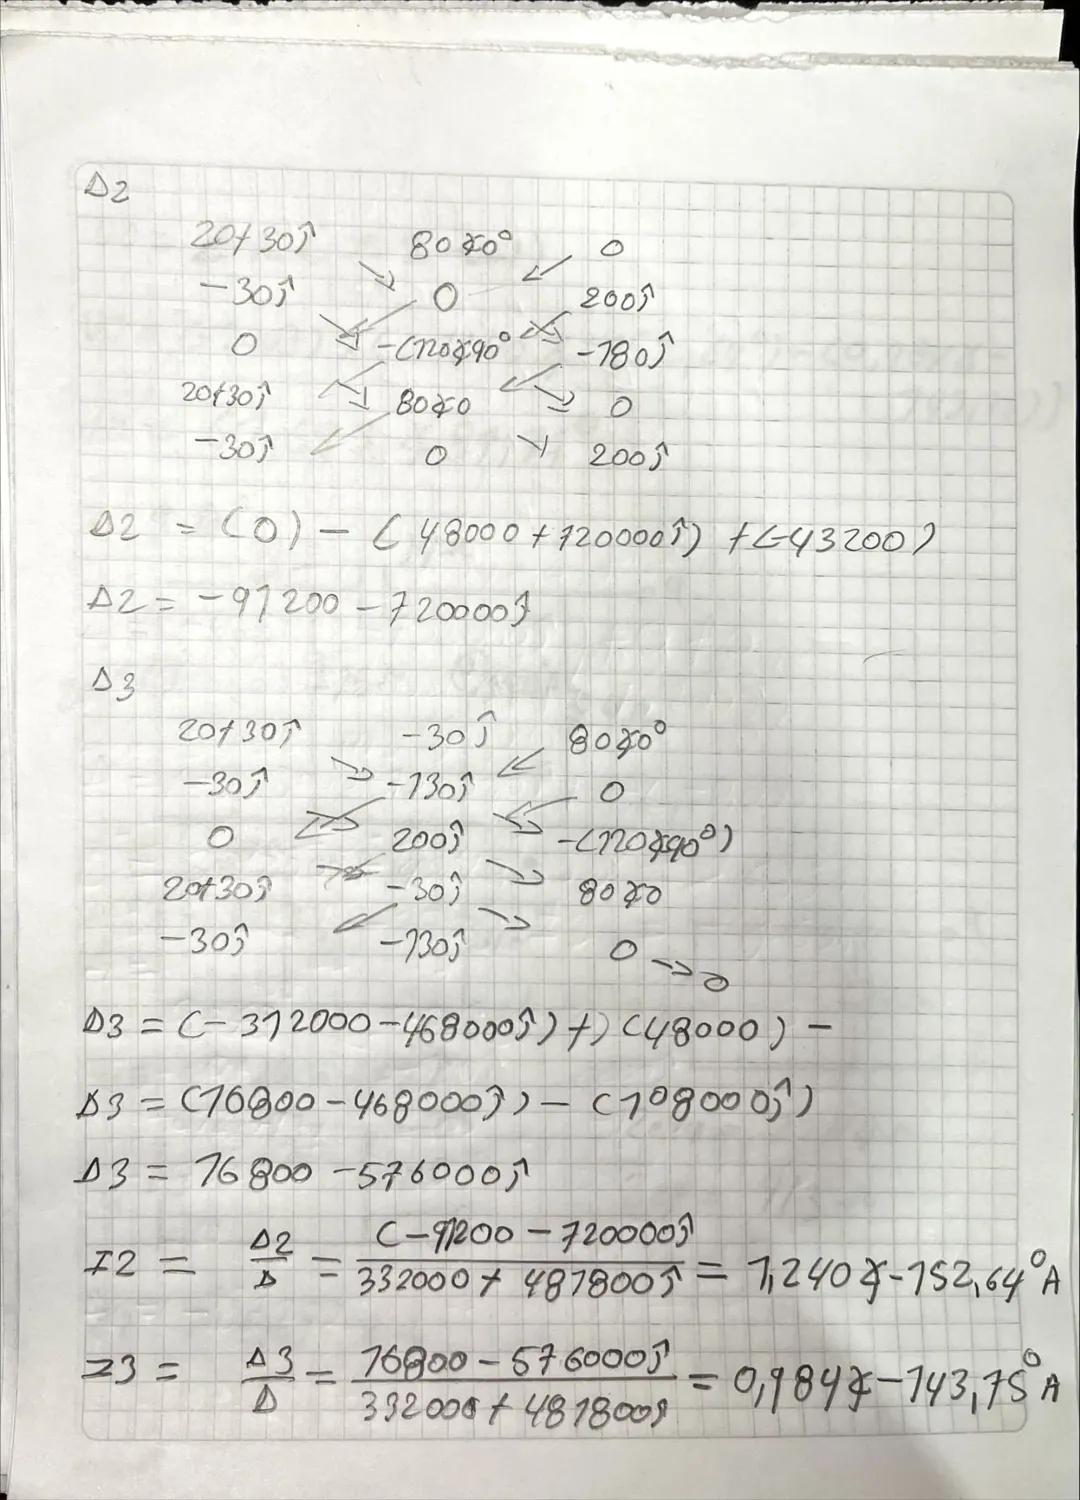 Δ2
20+30j 80∠0° 0
-30j 0 200j
0 -(120∠90° -180j
20+30j 80∠0 0
-30j 0 200j
Δ2 = (0) - (48000 + 720000j) + (-43200)
Δ2 = -91200 - 720000j
Δ3
20+30j -30j 80∠0°
-30j -130j 0
0 200j -(120∠90°)
20+30j -30j 80∠0
-30j -130j 0 → 0
Δ3 = (-312000 - 468000j) +) (48000) -
Δ3 = (16800 - 468000j) - (108000j)
Δ3 = 16800 - 576000j
I2 = Δ2/Δ = (-91200 - 720000j / 332000 + 481800j = 1,240∠-152,64° A
I3 = Δ3/Δ = 16800 - 576000j / 332000 + 481800j = 0,984∠-143,75° A